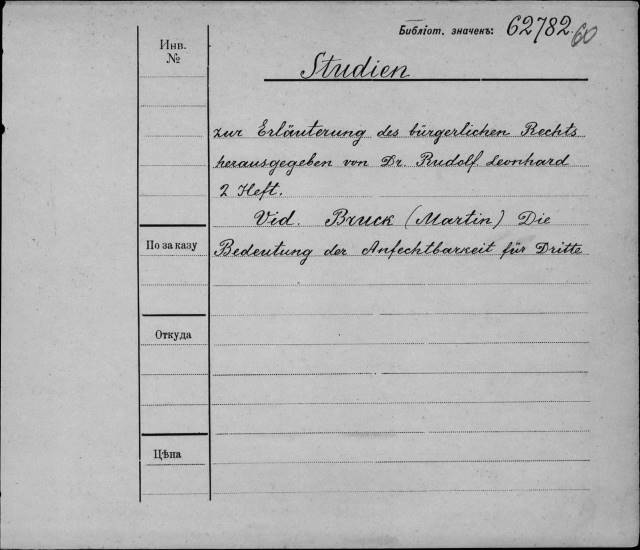 Библіот. значекъ: 62782.
60
Инв.
№
Studien
zur Erläuterung des bürgerlichen Rechts
herausgegeben von Dr. Rudolf Leonhard
2 Heft.
Vid. Bruck (Martin) Die
По заказу
Bedeutung der Anfechtbarkeit für Dritte
Откуда
Цѣна